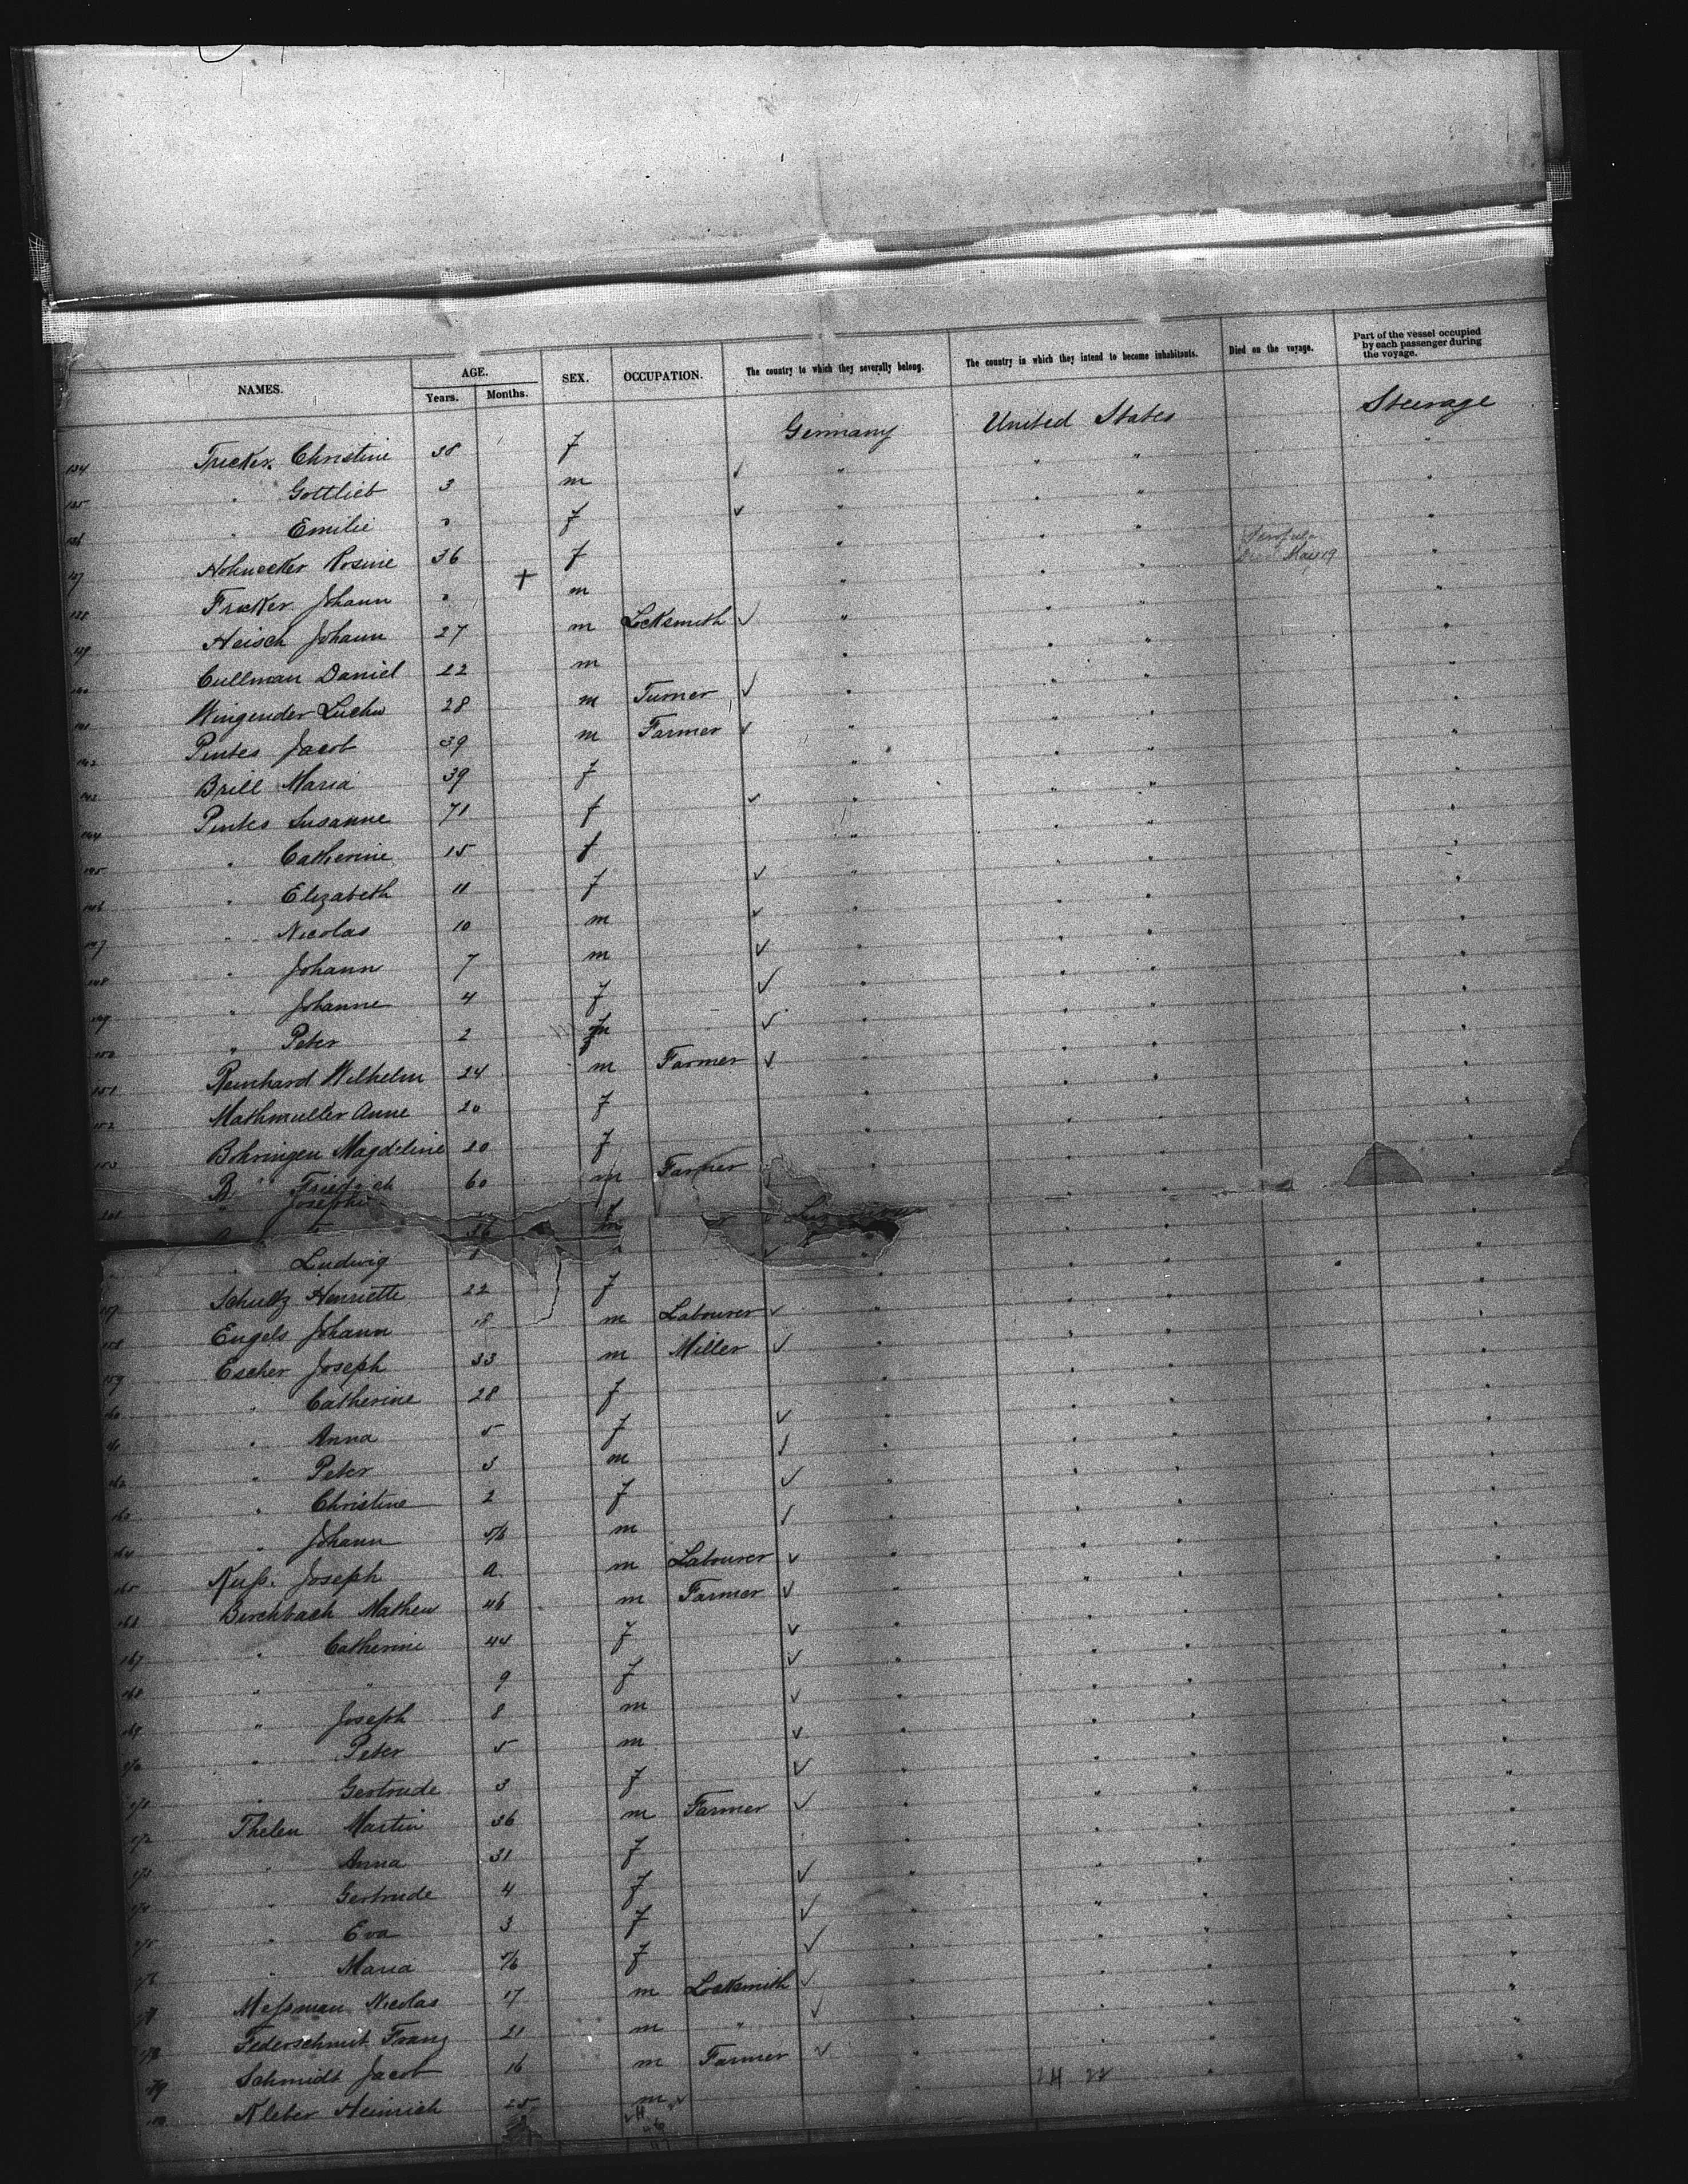 NAMES. AGE. SEX. OCCUPATION. The country to which they severally belong. The country in which they intend to become inhabitants. Died on the voyage. Part of the vessel occupied by each passenger during the voyage.
Years. Months.
134 Fricker Christine 38 f Germany United States Steerage
135 " Gottlieb 3 m ✓ " " " "
136 " Emilie f ✓ " " " "
137 Hohnecker Rosine 36 f " " " "
138 Fricker Johann + m " " " Died May 19 "
139 Heisch Johann 27 m Locksmith ✓ " " " "
140 Cullman Daniel 22 m " " " "
141 Wingender 28 m Turner ✓ " " " "
142 Pintes Jacob 39 m Farmer ✓ " " " "
143 Brill Maria 39 f " " " "
144 Pintes Susanne 71 f ✓ " " " "
145 " Catherine 15 f " " " "
146 " Elizabeth 11 f ✓ " " " "
147 " Nicolas 10 m ✓ " " " "
148 " Johann 7 m ✓ " " " "
149 " Johanne 4 f ✓ " " " "
150 " Peter 2 m ✓ " " " "
151 Reinhard Wilhelm 24 m Farmer ✓ " " " "
152 Mathmuller Anne 20 f " " " "
153 Bohringen Magdeline 20 f " " " "
B " Friedrich 60 m Farmer " " " "
" Josephi f
36 m
" Ludwig ✓ " " " "
157 Schultz Henriette 22 f " " " "
158 Engels Johann 18 m Labourer ✓ " " " "
159 Escher Joseph 33 m Miller ✓ " " " "
160 " Catherine 28 f " " " "
161 " Anna 5 f ✓ " " " "
162 " Peter 3 m ✓ " " " "
163 " Christine 2 f ✓ " " " "
164 " Johann 5/6 m ✓ " " " "
165 Kuß. Joseph m Labourer ✓ " " " "
166 Birchbach Mathew 46 m Farmer ✓ " " " "
167 " Catherine 44 f ✓ " " " "
168 " " 9 f ✓ " " " "
169 " Joseph 8 m ✓ " " " "
170 " Peter 5 m ✓ " " " "
171 " Gertrude 3 f ✓ " " " "
172 Thelen Martin 36 m Farmer ✓ " " " "
173 " Anna 31 f " " " "
174 " Gertrude 4 f ✓ " " " "
175 " Eva 3 f ✓ " " " "
176 " Maria 5/6 f ✓ " " " "
177 Meßman Nicolas 17 m Locksmith ✓ " " " "
178 Federschmit Franz 21 m " ✓ " " " "
179 Schmidt Jacob 16 m Farmer ✓ " " " "
180 Kleber Heinrich 25 m ✓ " "